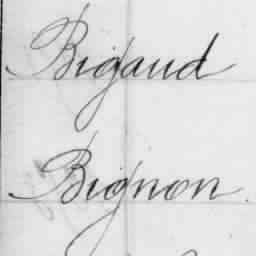 Bigaud
Bignon.